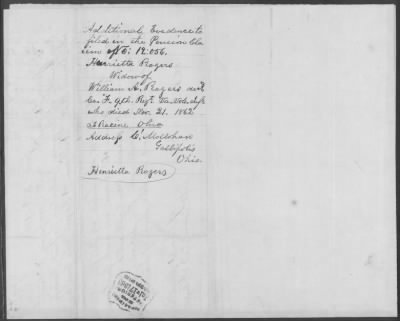 Additional Evidence to
filed in the Pension Cla
im No: 12.056.
Henrietta Rogers
Widow of
William A. Rogers decd
Co. F. 9th. Regt. Va. Vols. Inf
who died Nov. 21. 1862
at Racine Ohio
Address C. McClohan
Gallipolis
Ohio.
Henrietta Rogers